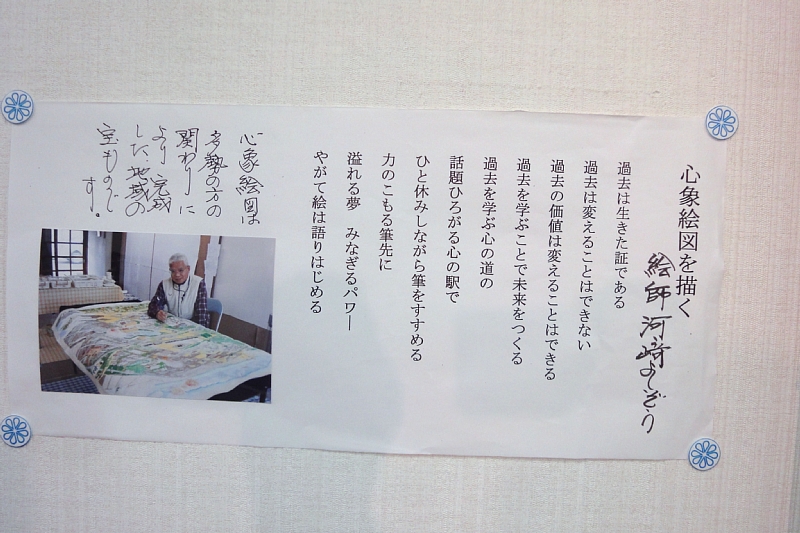 心象絵図を描く
絵師 河崎よしぞう
過去は生きた証である
過去は変えることはできない
過去の価値は変えることはできる
過去を学ぶことで未来をつくる
過去を学ぶ心の道の
話題ひろがる心の駅で
ひと休みしながら筆をすすめる
力のこもる筆先に
溢れる夢　みなぎるパワー
やがて絵は語りはじめる
心象絵図は
多勢の方の
関わりに
より完成
した、地域の
宝ものて
す。